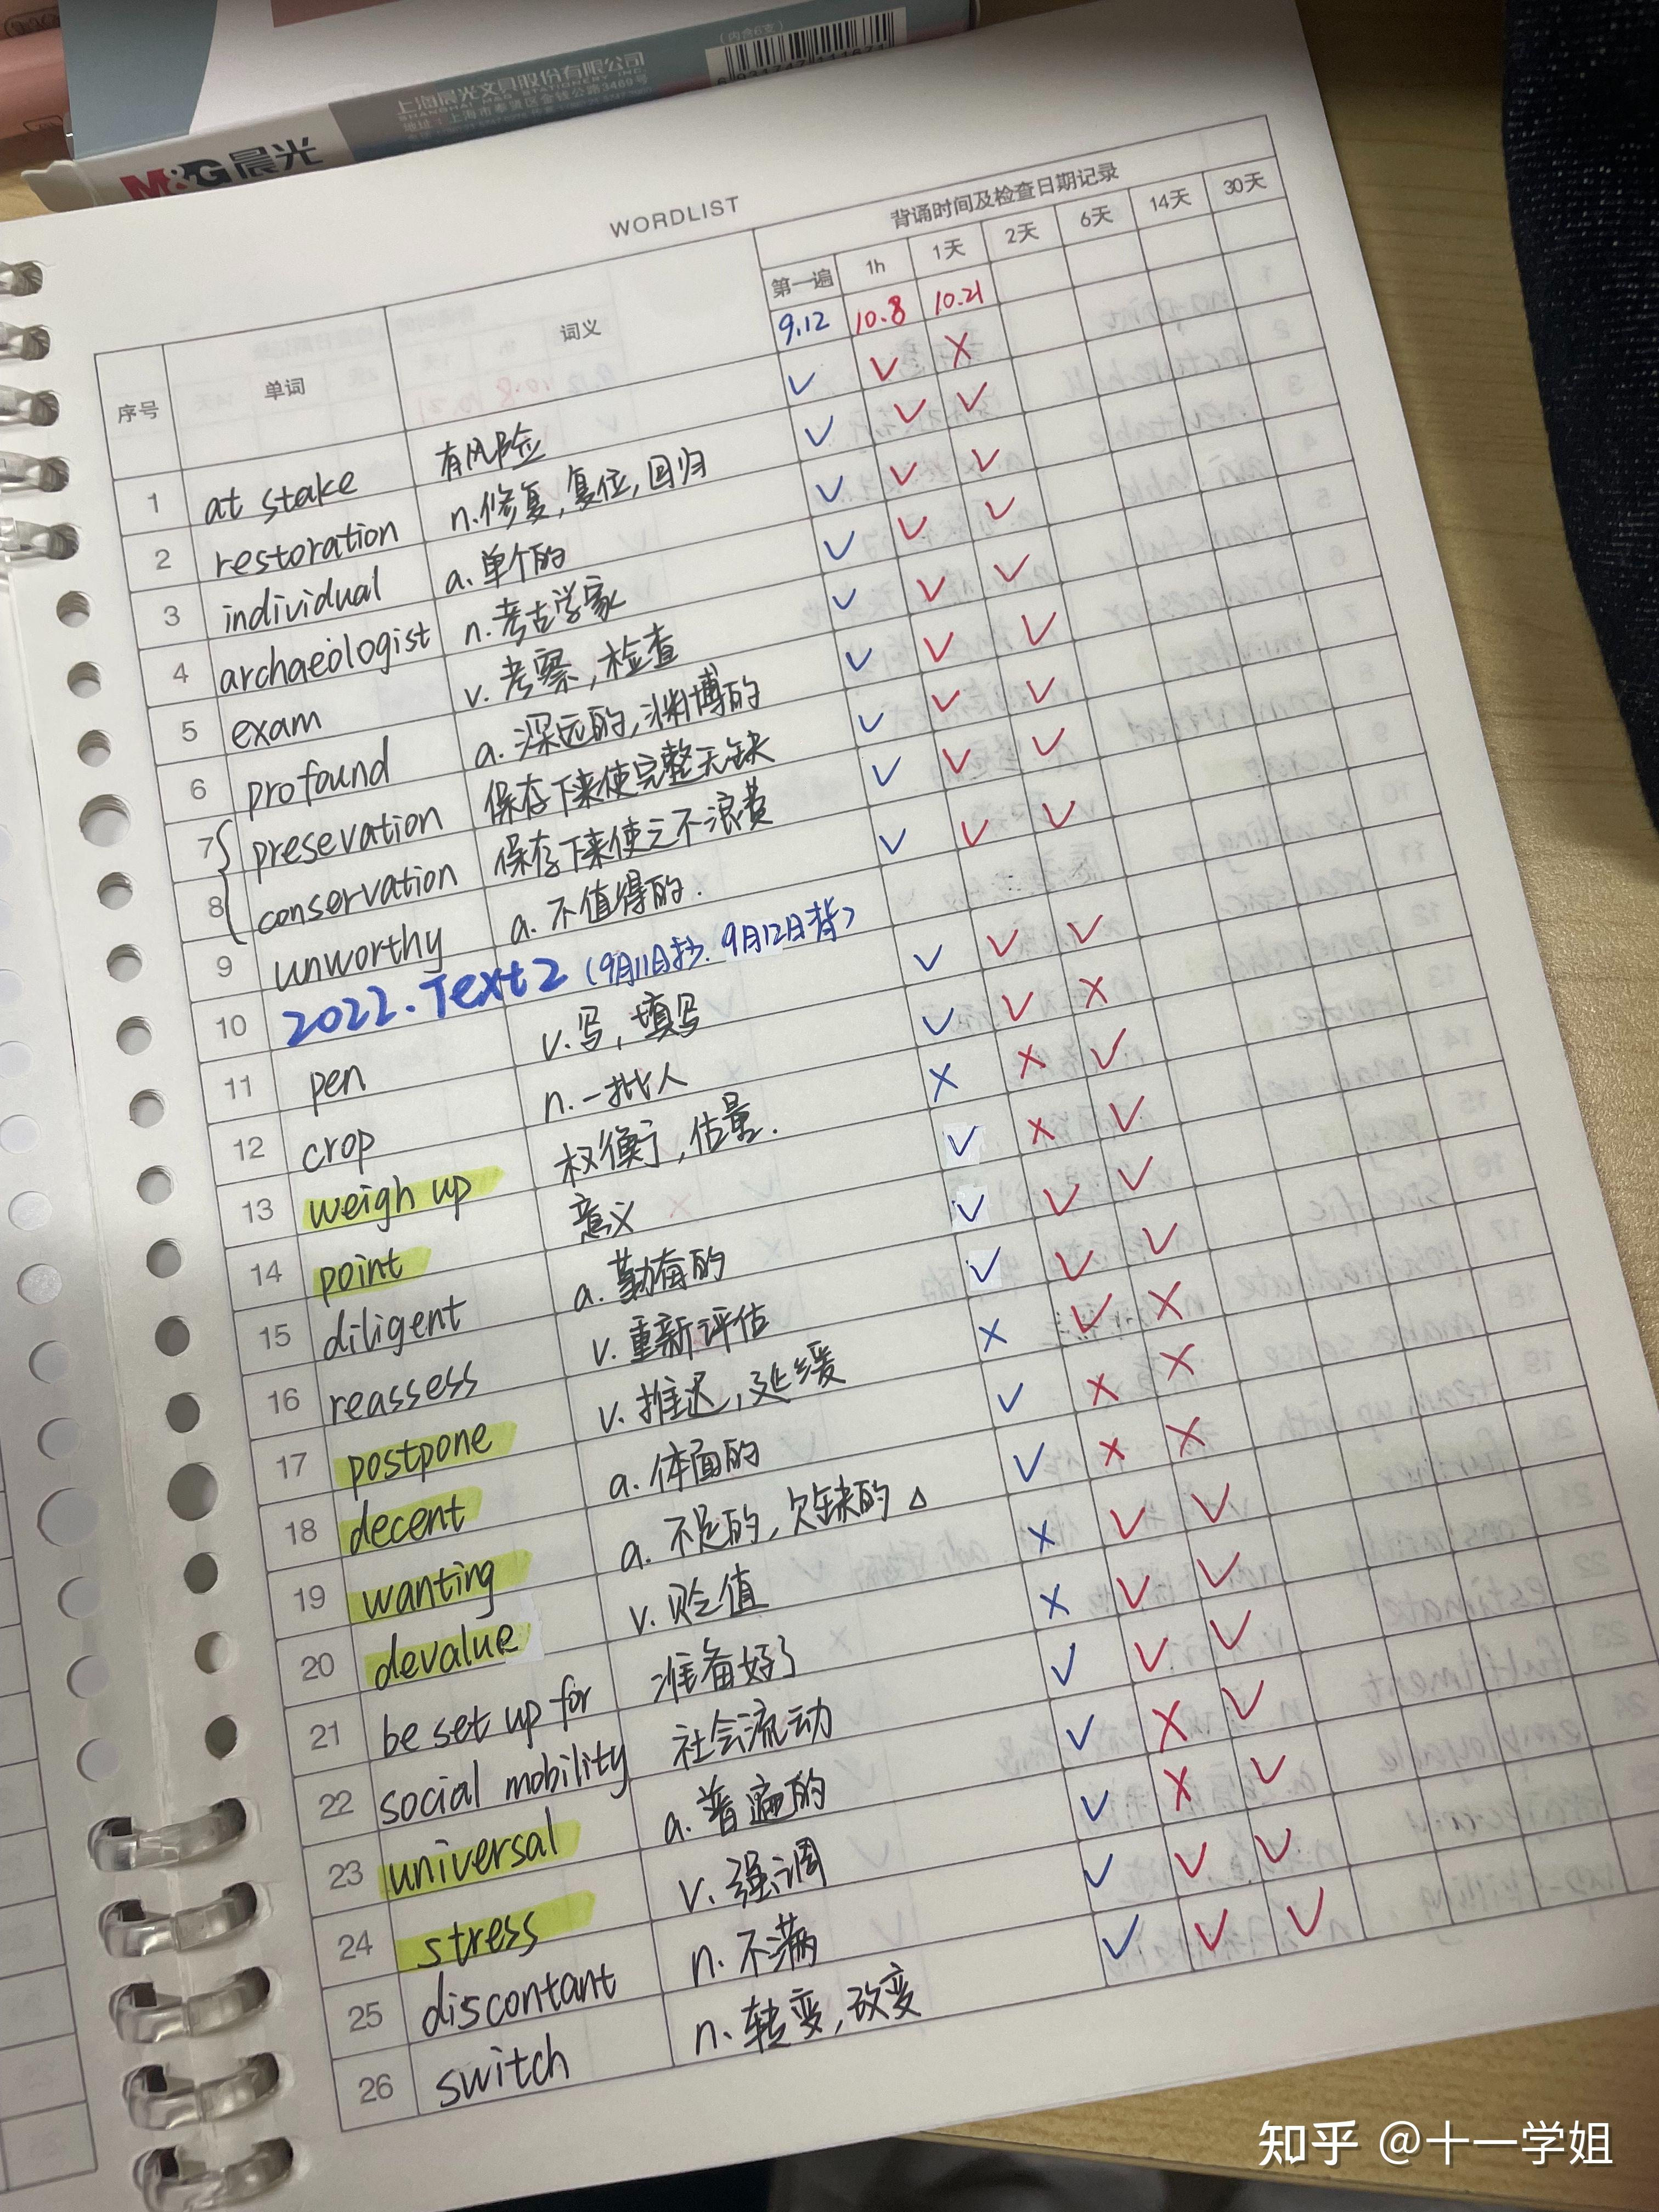 (内含6支)
上海晨光文具股份有限公司
SHANGHAI M&G STATIONERY INC.
地址:上海市奉贤区金钱公路3469号
M&G 晨光
WORDLIST
序号 单词 词义 背诵时间及检查日期记录
第一遍 1h 1天 2天 6天 14天 30天
9.12 10.8 10.21
1 at stake 有风险 ✓ ✓ ×
2 restoration n.修复,复位,回归 ✓ ✓ ✓
3 individual a.单个的 ✓ ✓ ✓
4 archaeologist n.考古学家 ✓ ✓ ✓
5 exam v.考察,检查 ✓ ✓ ✓
6 profound a.深远的,渊博的 ✓ ✓ ✓
7 presevation 保存下来使完整无缺 ✓ ✓ ✓
8 conservation 保存下来使之不浪费 ✓ ✓ ✓
9 unworthy a.不值得的. ✓ ✓ ✓
10 2022.Text2 (9月11日抄. 9月12日背)
11 pen v.写,填写 ✓ ✓ ✓
12 crop n.一批人 ✓ ✓ ×
13 weigh up 权衡,估量. × × ✓
14 point 意义 ✓ × ✓
15 diligent a.勤奋的 ✓ ✓ ✓
16 reassess v.重新评估 ✓ ✓ ✓
17 postpone v.推迟,延缓 × ✓ ×
18 decent a.体面的 ✓ × ×
19 wanting a.不足的,欠缺的 △ ✓ × ×
20 devalue v.贬值 × ✓ ✓
21 be set up for 准备好了 × ✓ ✓
22 social mobility 社会流动 ✓ ✓ ✓
23 universal a.普遍的 ✓ × ✓
24 stress v.强调 ✓ × ✓
25 discontant n.不满 ✓ ✓ ✓
26 switch n.转变,改变 ✓ ✓ ✓
知乎 @十一学姐